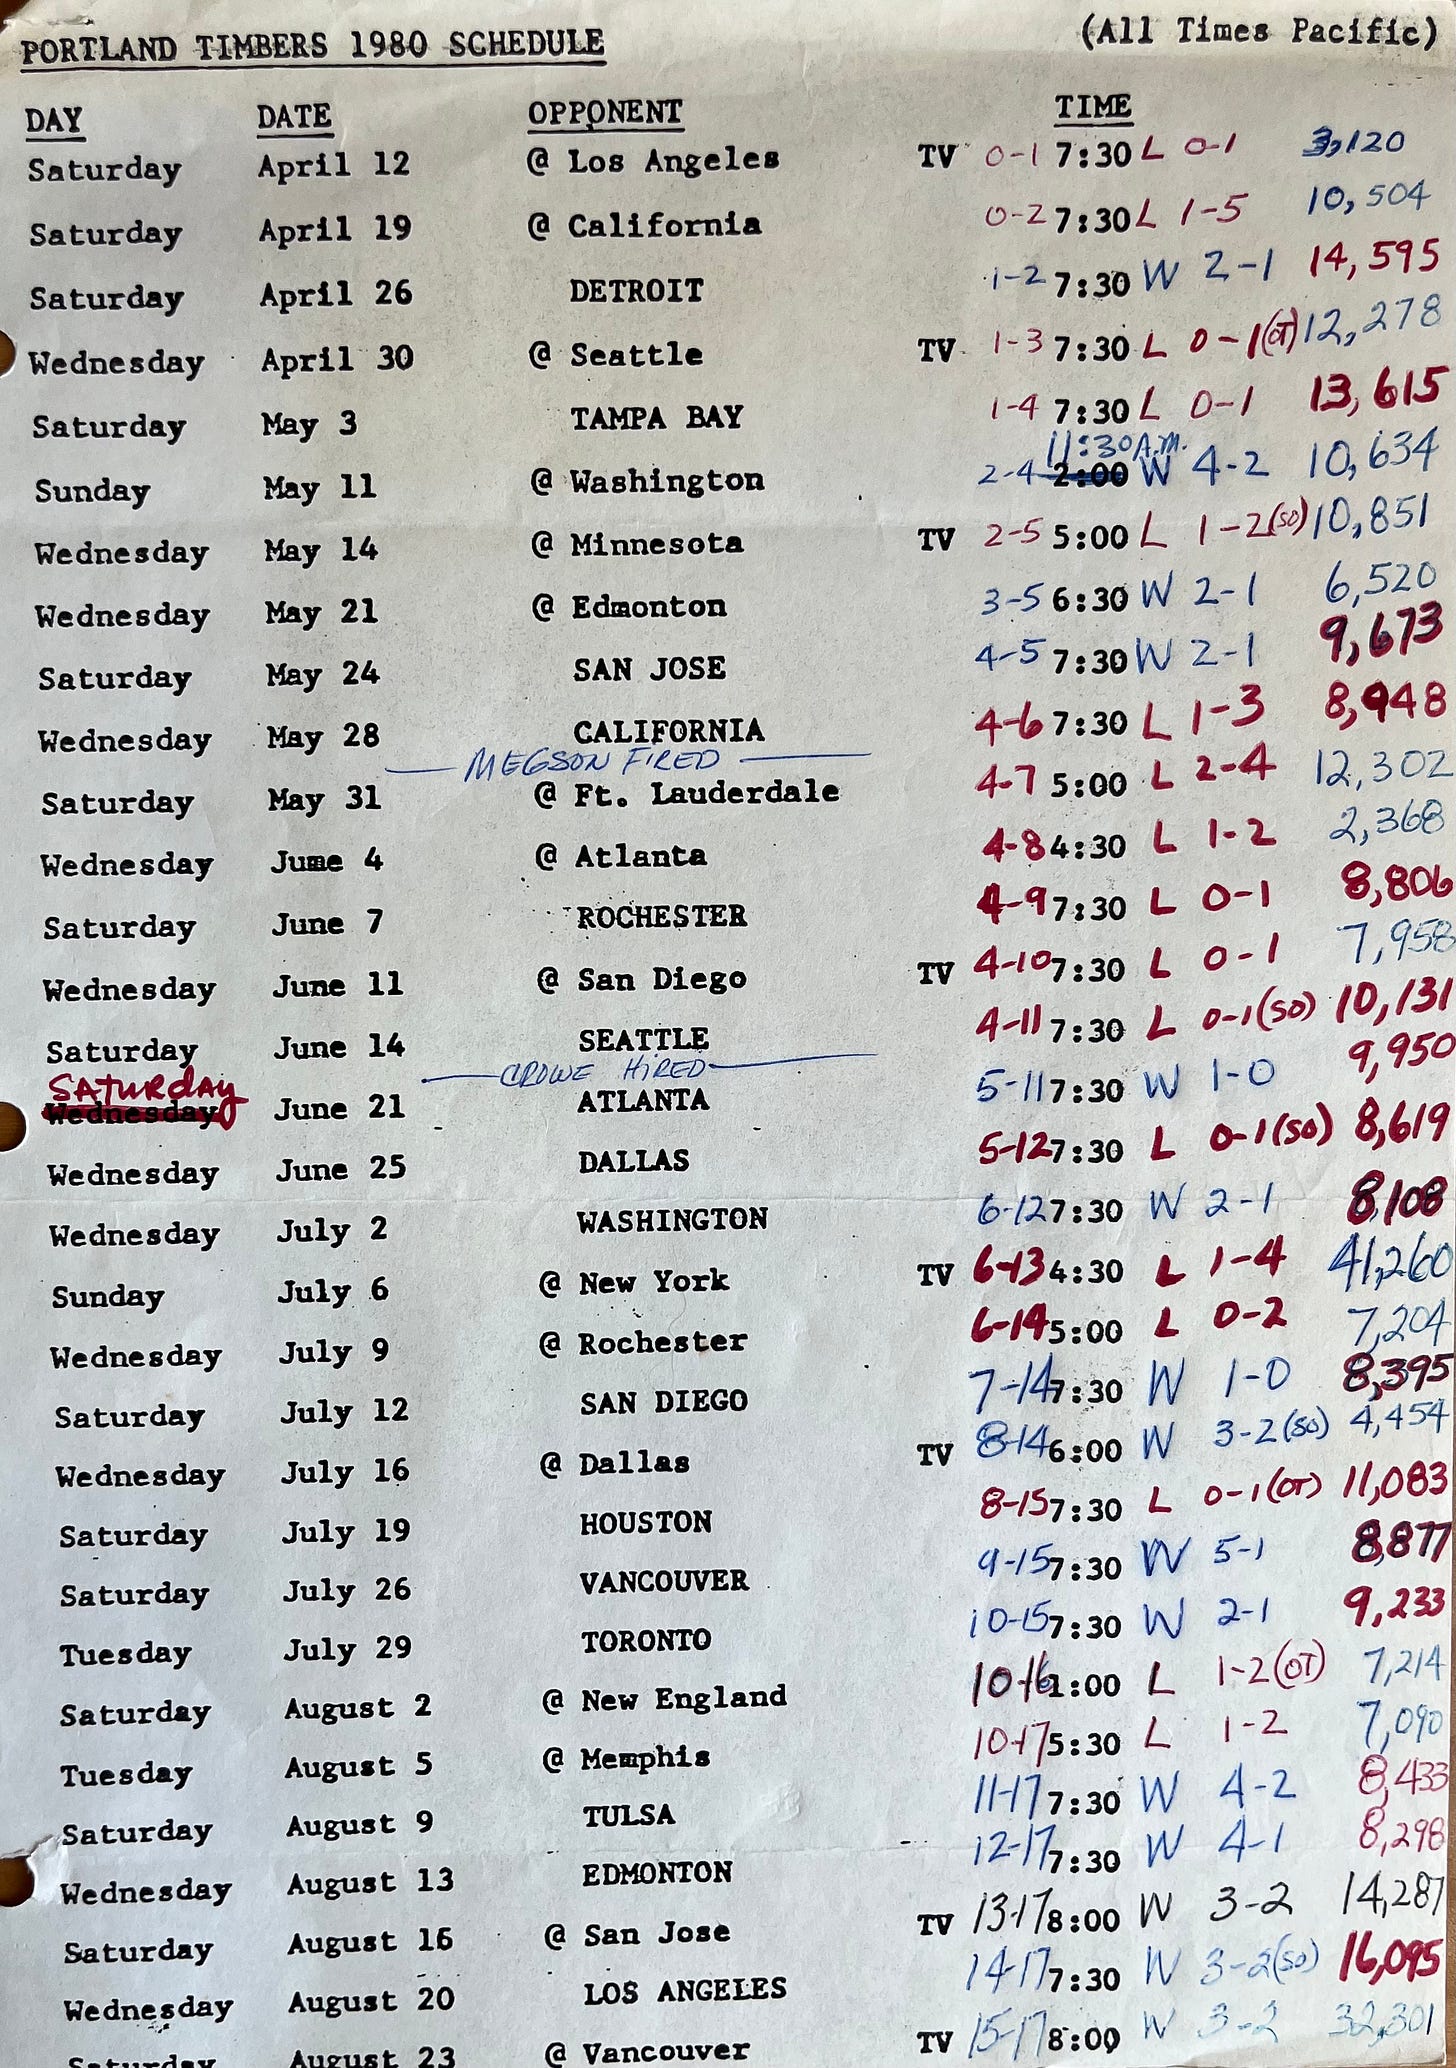 PORTLAND TIMBERS 1980 SCHEDULE (All Times Pacific)
DAY DATE OPPONENT TIME
Saturday April 12 @ Los Angeles TV 0-1 7:30 L 0-1 3,120
Saturday April 19 @ California 0-2 7:30 L 1-5 10,504
Saturday April 26 DETROIT 1-2 7:30 W 2-1 14,595
Wednesday April 30 @ Seattle TV 1-3 7:30 L 0-1(OT) 12,278
Saturday May 3 TAMPA BAY 1-4 7:30 L 0-1 13,615
11:30 A.M.
Sunday May 11 @ Washington 2-4 2:00 W 4-2 10,634
Wednesday May 14 @ Minnesota TV 2-5 5:00 L 1-2(SO) 10,851
Wednesday May 21 @ Edmonton 3-5 6:30 W 2-1 6,520
Saturday May 24 SAN JOSE 4-5 7:30 W 2-1 9,673
Wednesday May 28 CALIFORNIA 4-6 7:30 L 1-3 8,948
MEGSON FIRED
Saturday May 31 @ Ft. Lauderdale 4-7 5:00 L 2-4 12,302
Wednesday June 4 @ Atlanta 4-8 4:30 L 1-2 2,368
Saturday June 7 ROCHESTER 4-9 7:30 L 0-1 8,806
Wednesday June 11 @ San Diego TV 4-10 7:30 L 0-1 7,958
Saturday June 14 SEATTLE 4-11 7:30 L 0-1(SO) 10,131
CROWE HIRED
SATURDAY
Wednesday June 21 ATLANTA 5-11 7:30 W 1-0 9,950
Wednesday June 25 DALLAS 5-12 7:30 L 0-1(SO) 8,619
Wednesday July 2 WASHINGTON 6-12 7:30 W 2-1 8,108
Sunday July 6 @ New York TV 6-13 4:30 L 1-4 41,260
Wednesday July 9 @ Rochester 6-14 5:00 L 0-2 7,204
Saturday July 12 SAN DIEGO 7-14 7:30 W 1-0 8,395
Wednesday July 16 @ Dallas TV 8-14 6:00 W 3-2(SO) 4,454
Saturday July 19 HOUSTON 8-15 7:30 L 0-1(OT) 11,083
Saturday July 26 VANCOUVER 9-15 7:30 W 5-1 8,877
Tuesday July 29 TORONTO 10-15 7:30 W 2-1 9,233
Saturday August 2 @ New England 10-16 1:00 L 1-2(OT) 7,214
Tuesday August 5 @ Memphis 10-17 5:30 L 1-2 7,090
Saturday August 9 TULSA 11-17 7:30 W 4-2 8,433
Wednesday August 13 EDMONTON 12-17 7:30 W 4-1 8,298
Saturday August 16 @ San Jose TV 13-17 8:00 W 3-2 14,287
Wednesday August 20 LOS ANGELES 14-17 7:30 W 3-2(SO) 16,095
Saturday August 23 @ Vancouver TV 15-17 8:00 W 3-2 32,301